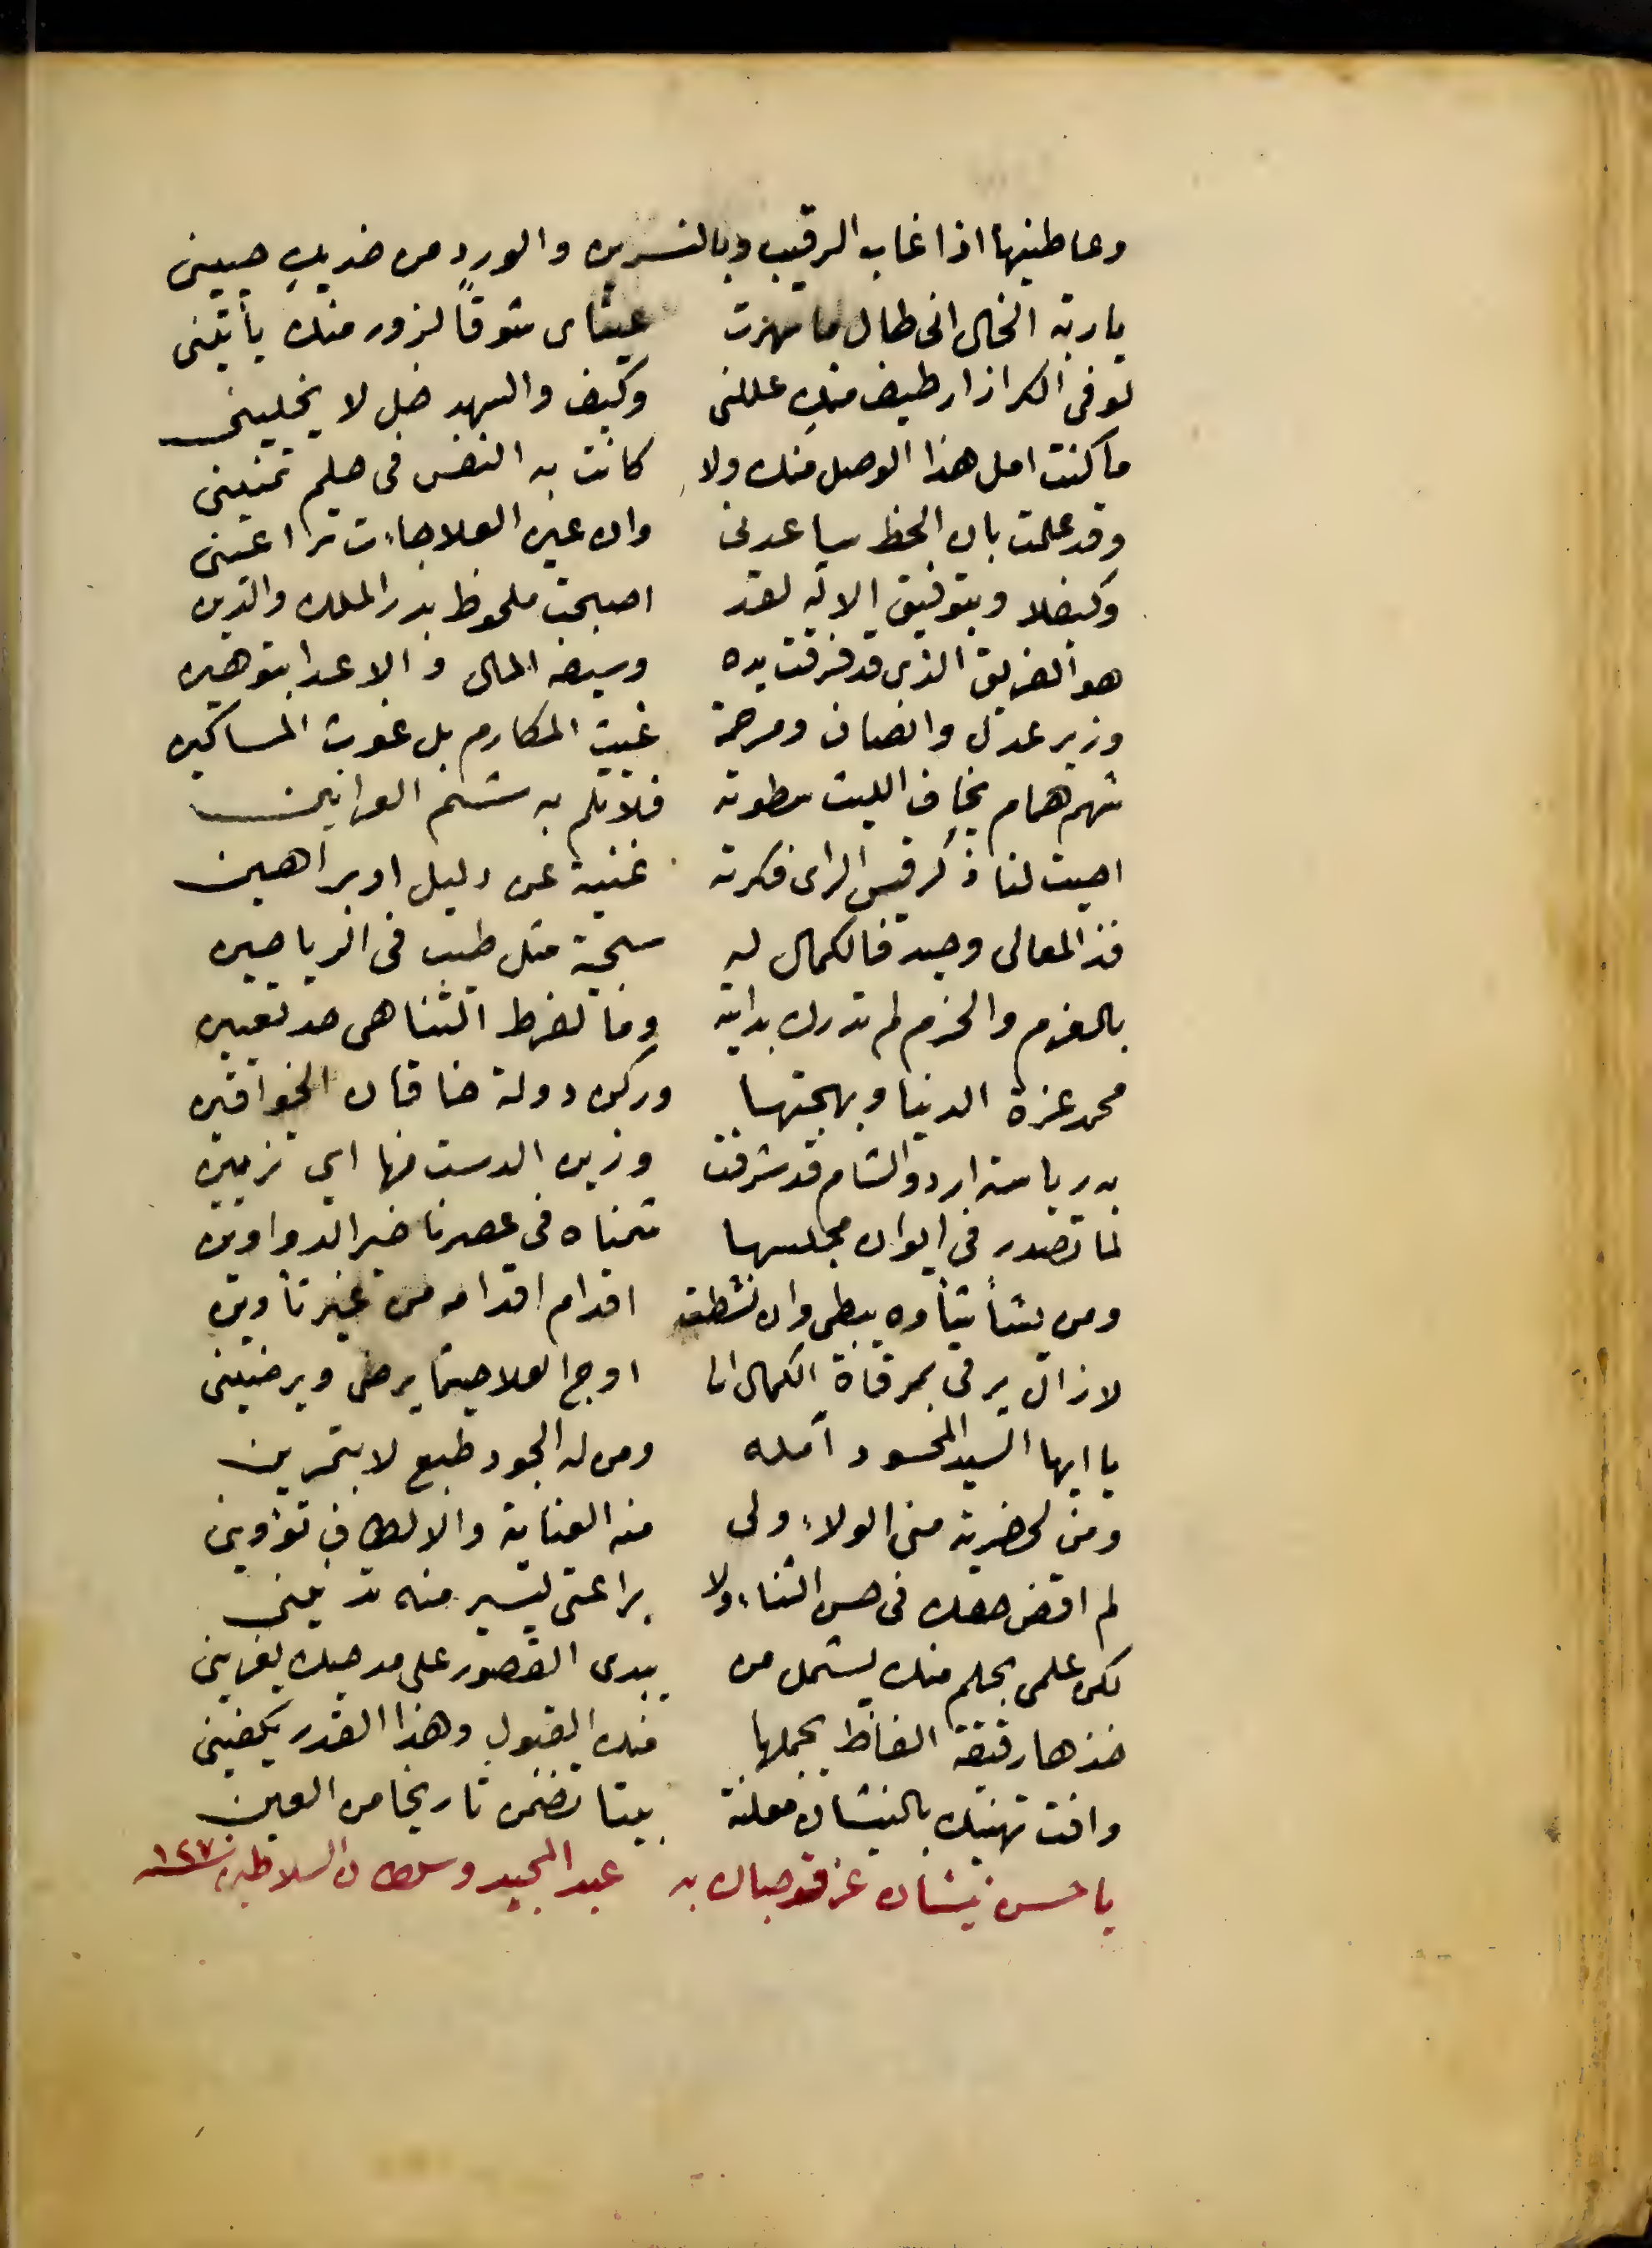 وعاطنيها اذا غاب الرقيب وبالنسرين والورد من خديك حييني
يا ربة الخال انى طال ما سهرت عيناى شوقًا لزور منك يأتينى
لو فى الكرا زار طيف منكِ عللنى وكيف والسهد خل لا يخلينى
ما كنت امل هذا الوصل منك ولا كانت به النفس فى حلم تمنينى
وقد علمت بان الحظ ساعدنى وان عين العلا جاءت تراعينى
وكيف لا وبتوفيق الاله لقد اصبحت ملحوظ بدر الملك والدين
هو الفريق الذى قد فرقت يده وسيفه المال والاعدا بتوهين
وزير عدل وانصاف ومرحمة غيث المكارم بل غوث المساكين
شهم همام يخاف الليث سطوته فلا تلم به شم العرانين
احيت لنا ذكر قيس الراى فكرته غنية عن دليل او براهين
فذ المعالى وحيد فالكمال له سجية مثل طيب فى الرياحين
بالعزم والحزم لم تدرك بدايته وما لفرط الثنا هى حد تعيين
محمد عزة الدنيا وبهجتها وركن دولة خاقان الخواقين
به رياسة اردو الشام قد شرفت وزين الدست منها اى تزيين
لما تصدر فى ايوان مجلسها قمناه فى عصرنا خير الدواوين
ومن يشأ شأوه يبطى وان نشطت اقدام اقدامه من غير تأوين
لا زال يرقى بمرقاة الكمال الى اوج العلا حيثما يرضى ويرضينى
يا ايها السيد المحسود آمله ومن له الجود طبع لا بتمرين
ومن لحضرته منى الولاء ولى منه العناية والالطاف تؤوينى
لم اقض حقك فى حسن الثناء ولا يراعتى ليسير منه تدنينى
لكن علمى بحلم منك يشمل من يبدى القصور على مدحيك يغرينى
خذها رقيقة الفاظ يجملها منك القبول وهذا القدر يكفينى
وافت تهنيك بالنيشان معلنة بيتا تضمن تاريخا من العين
يا حسن نيشان عز قد حباك به عبد المجيد وسلطان السلاطين